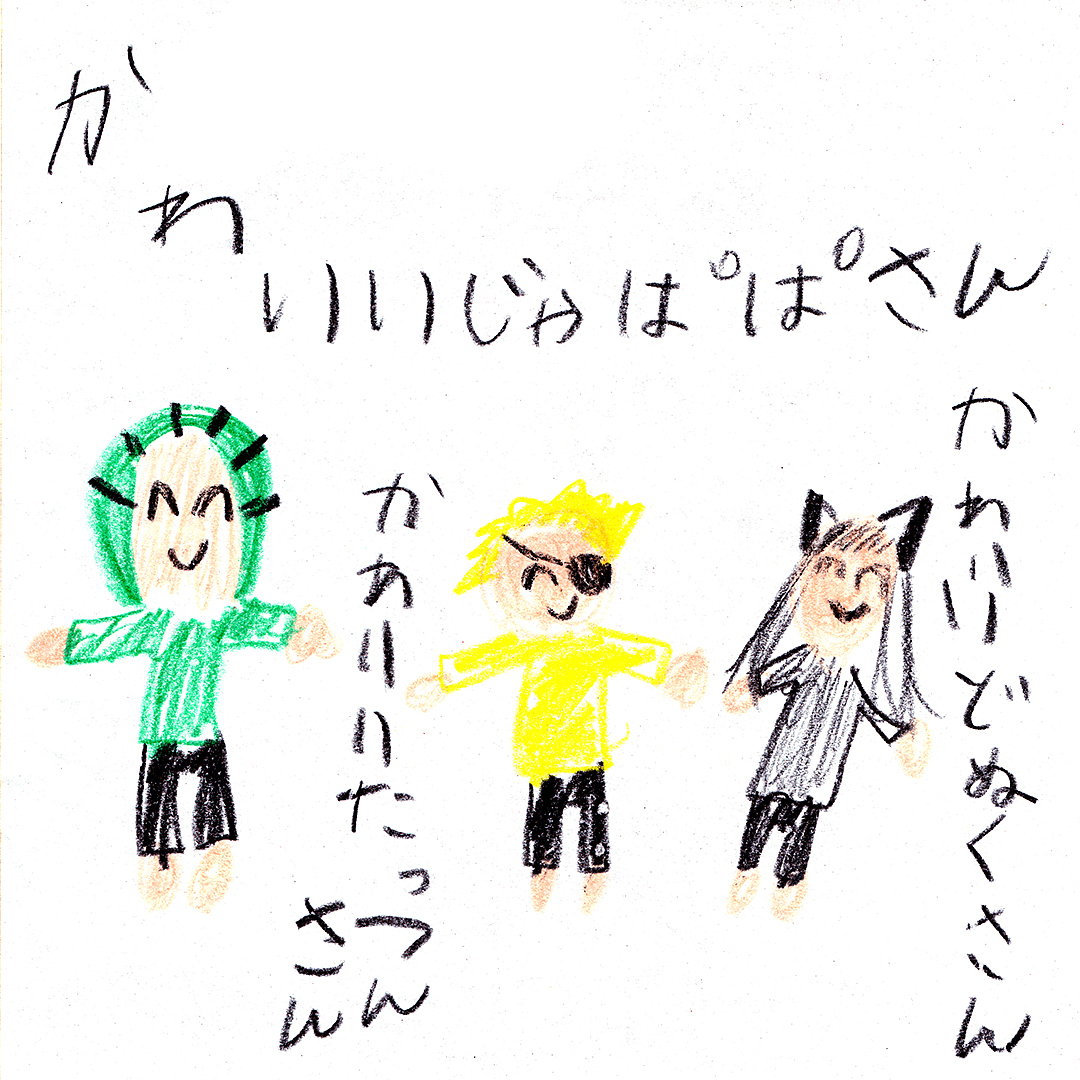 かわいいじゃぱぱさん
かわいいどぬくさん
かわいいたっつん
さん